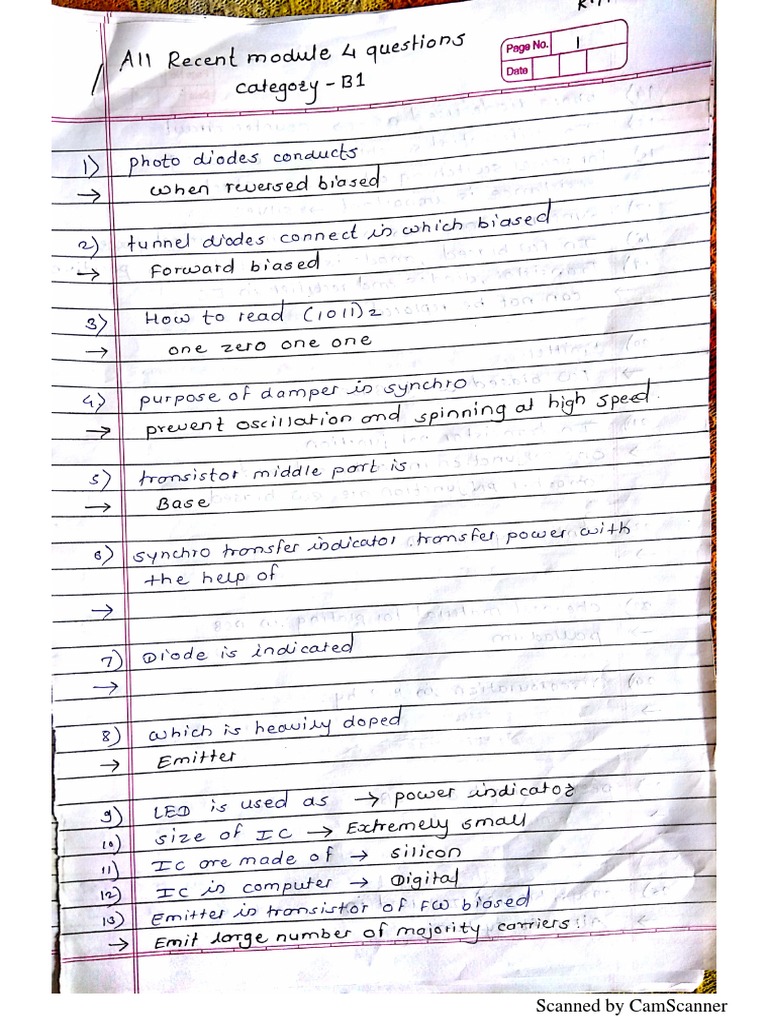 All Recent module 4 questions
category - B1
Page No. 1
Date
1) photo diodes conducts
→ when reversed biased
2) tunnel diodes connect in which biased
→ Forward biased
3) How to read (1011)2
→ one zero one one
4) purpose of damper is synchro
→ prevent oscillation and spinning at high speed.
5) transistor middle part is
→ Base
6) synchro transfer indicator transfer power with
the help of
→
7) Diode is indicated
→
8) which is heavily doped
→ Emitter
9) LED is used as → power indicator
10) size of IC → Extremely small
11) IC are made of → silicon
12) IC in computer → Digital
13) Emitter in transistor of FW biased
→ Emit large number of majority carriers.
Scanned by CamScanner